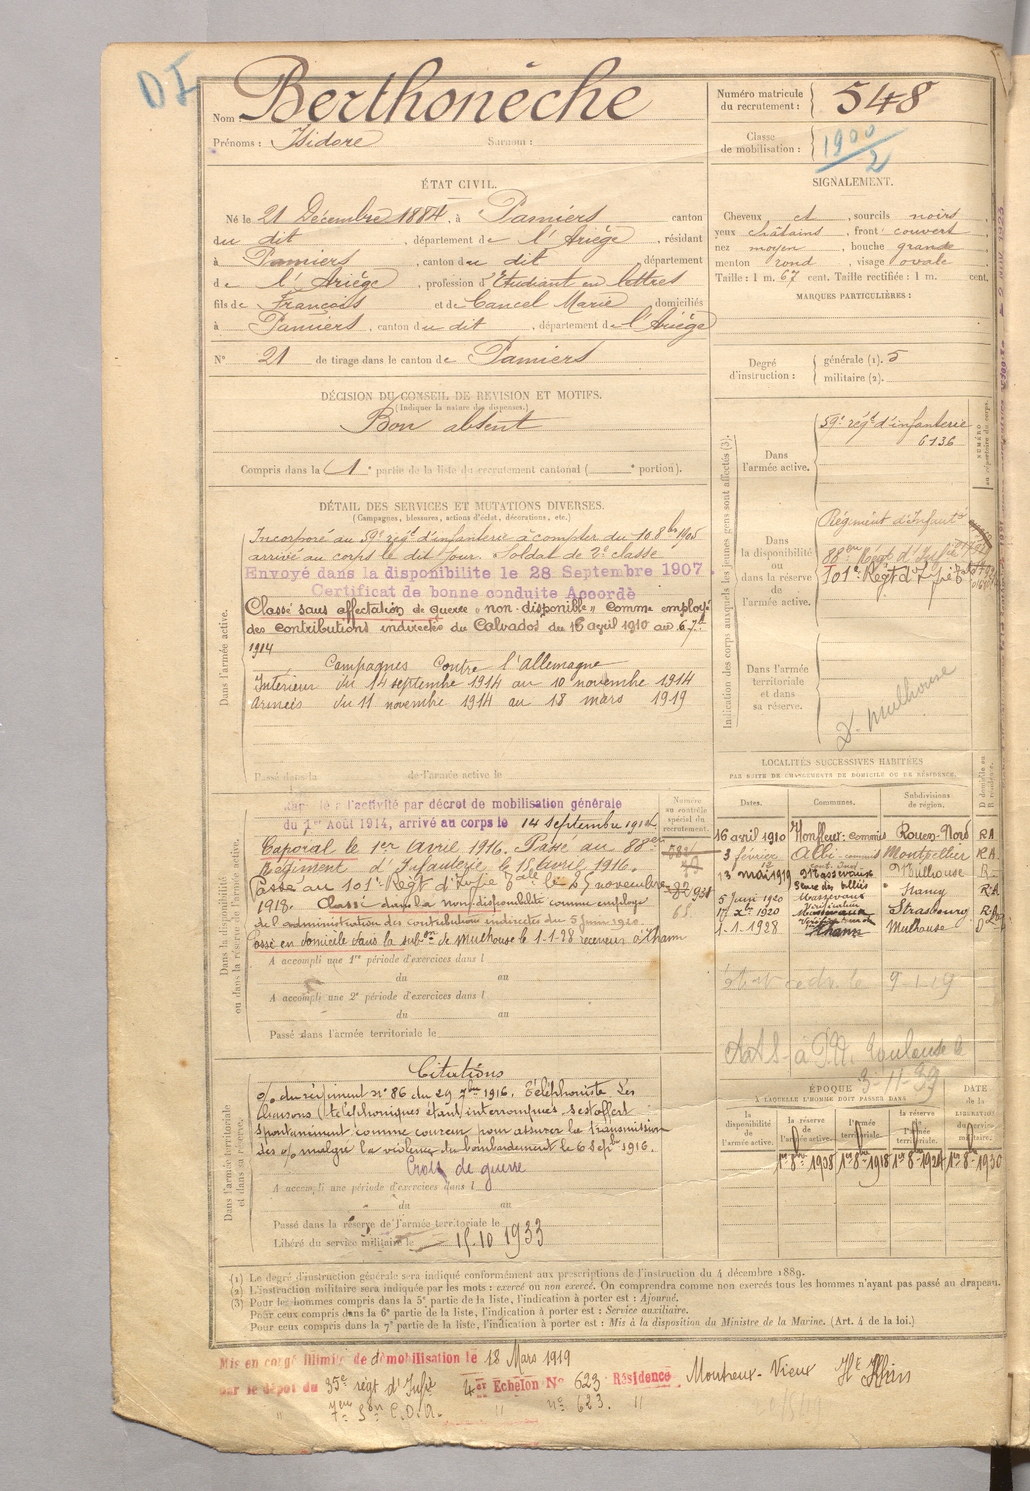 DI
Nom : Berthonèche
Prénoms : Isidore Surnom :
Numéro matricule
du recrutement : 548
Classe
de mobilisation : 1900/2
ÉTAT CIVIL.
Né le 21 Décembre 1884, à Pamiers canton
du dit, département de l'Ariège, résidant
à Pamiers, canton du dit département
de l'Ariège, profession d'Etudiant en lettres
fils de François et de Cancel Marie domiciliés
à Pamiers, canton du dit, département de l'Ariège
N° 21 de tirage dans le canton de Pamiers
SIGNALEMENT.
Cheveux et, sourcils noirs,
yeux châtains, front couvert
nez moyen, bouche grande
menton rond, visage ovale
Taille : 1 m. 67 cent. Taille rectifiée : 1 m. cent.
MARQUES PARTICULIÈRES :
Degré
d'instruction :
générale (1). 5
militaire (2).
DÉCISION DU CONSEIL DE REVISION ET MOTIFS.
(Indiquer la nature des dispenses.)
Bon absent
Compris dans la 1e partie de la liste du recrutement cantonal ( e portion).
DÉTAIL DES SERVICES ET MUTATIONS DIVERSES.
(Campagnes, blessures, actions d'éclat, décorations, etc.)
Dans l'armée active.
Incorporé au 59e régt d'infanterie à compter du 10 8bre 1905
arrivé au corps le dit jour. Soldat de 2e classe
Envoyé dans la disponibilite le 28 Septembre 1907.
Certificat de bonne conduite Accordé
Classé sans affectation de guerre "non disponible" comme employé
des contributions indirectes du Calvados du 16 avril 1910 au 6 7bre
1914
Campagnes contre l'allemagne
Intérieur du 14 septembre 1914 au 10 novembre 1914
Armées du 11 novembre 1914 au 18 mars 1919
Passé dans la de l'armée active le
Indication des corps auxquels les jeunes gens sont affectés (3).
Dans
l'armée active.
59e régt d'infanterie
6136
Dans
la disponibilité
ou
dans la réserve
de
l'armée active.
Régiment d'Infantie
88ème Régt d'Infie
101e Régt d'Infie
Dans l'armée
territoriale
et dans
sa réserve.
D. Mulhouse
Dans la disponibilité
ou dans la réserve de l'armée active.
à l'activité par décret de mobilisation générale
du 1er Août 1914, arrivé au corps le 14 septembre 1914
Caporal le 1er Avril 1916. Passé au 88e
Régiment d'Infanterie le 15 avril 1916.
Passé au 101e Régt d'Infie le 25 novembre
1918. Classé dans la non disponibilité comme employé
de l'administration des contributions indirectes du 5 juin 1920.
Passé en domicile dans la subon de Mulhouse le 1-1-28 receveur à Thann
Numéro
au contrôle
spécial du
recrutement.
A accompli une 1re période d'exercices dans l
du au
A accompli une 2e période d'exercices dans l
du au
Passé dans l'armée territoriale le
LOCALITÉS SUCCESSIVES HABITÉES
PAR SUITE DE CHANGEMENTS DE DOMICILE OU DE RÉSIDENCE.
Dates. Communes. Subdivisions
de région.
D domicile ou
R résidence.
16 avril 1910 Honfleur: commis Rouen-Nord R
3 février Albi Montpellier R
13 mai 1919 Massevaux Mulhouse R
5 juin 1920 Massevaux Nancy R
17 xbre 1920 Strasbourg R
1-1-1928 Thann Mulhouse D
9-1-19
à Toulouse le
3-11-39
Dans l'armée territoriale
et dans sa réserve.
Citations
O/ du régiment n° 86 du 29 7bre 1916. Téléphoniste. Les
liaisons téléphoniques étant interrompues s'est offert
spontanément comme coureur pour assurer la transmission
des O/ malgré la violence du bombardement le 6 Septbre 1916.
Croix de guerre
A accompli une période d'exercices dans l
du au
Passé dans la réserve de l'armée territoriale le
Libéré du service militaire le 15-10 1933
ÉPOQUE
À LAQUELLE L'HOMME DOIT PASSER DANS
DATE
de la
LIBÉRATION
du service
militaire.
la
disponibilité
de
l'armée active.
la réserve
de
l'armée active.
l'armée
territoriale.
la réserve
de l'armée
territoriale.
1er 8bre 1908 1er 8bre 1918 1er 8bre 1924 1er 8bre 1930
(1) Le degré d'instruction générale sera indiqué conformément aux prescriptions de l'instruction du 4 décembre 1889.
(2) L'instruction militaire sera indiquée par les mots : exercé ou non exercé. On comprendra comme non exercés tous les hommes n'ayant pas passé au drapeau.
(3) Pour les hommes compris dans la 5e partie de la liste, l'indication à porter est : Ajourné.
Pour ceux compris dans la 6e partie de la liste, l'indication à porter est : Service auxiliaire.
Pour ceux compris dans la 7e partie de la liste, l'indication à porter est : Mis à la disposition du Ministre de la Marine. (Art. 4 de la loi.)
Mis en congé illimité de démobilisation le 18 Mars 1919
par le dépôt du 35e régt d'Infie 4er Echelon N° 623 Résidence Montreux-Vieux Hte Rhin
7me Son C.O.A. " n° 623. "